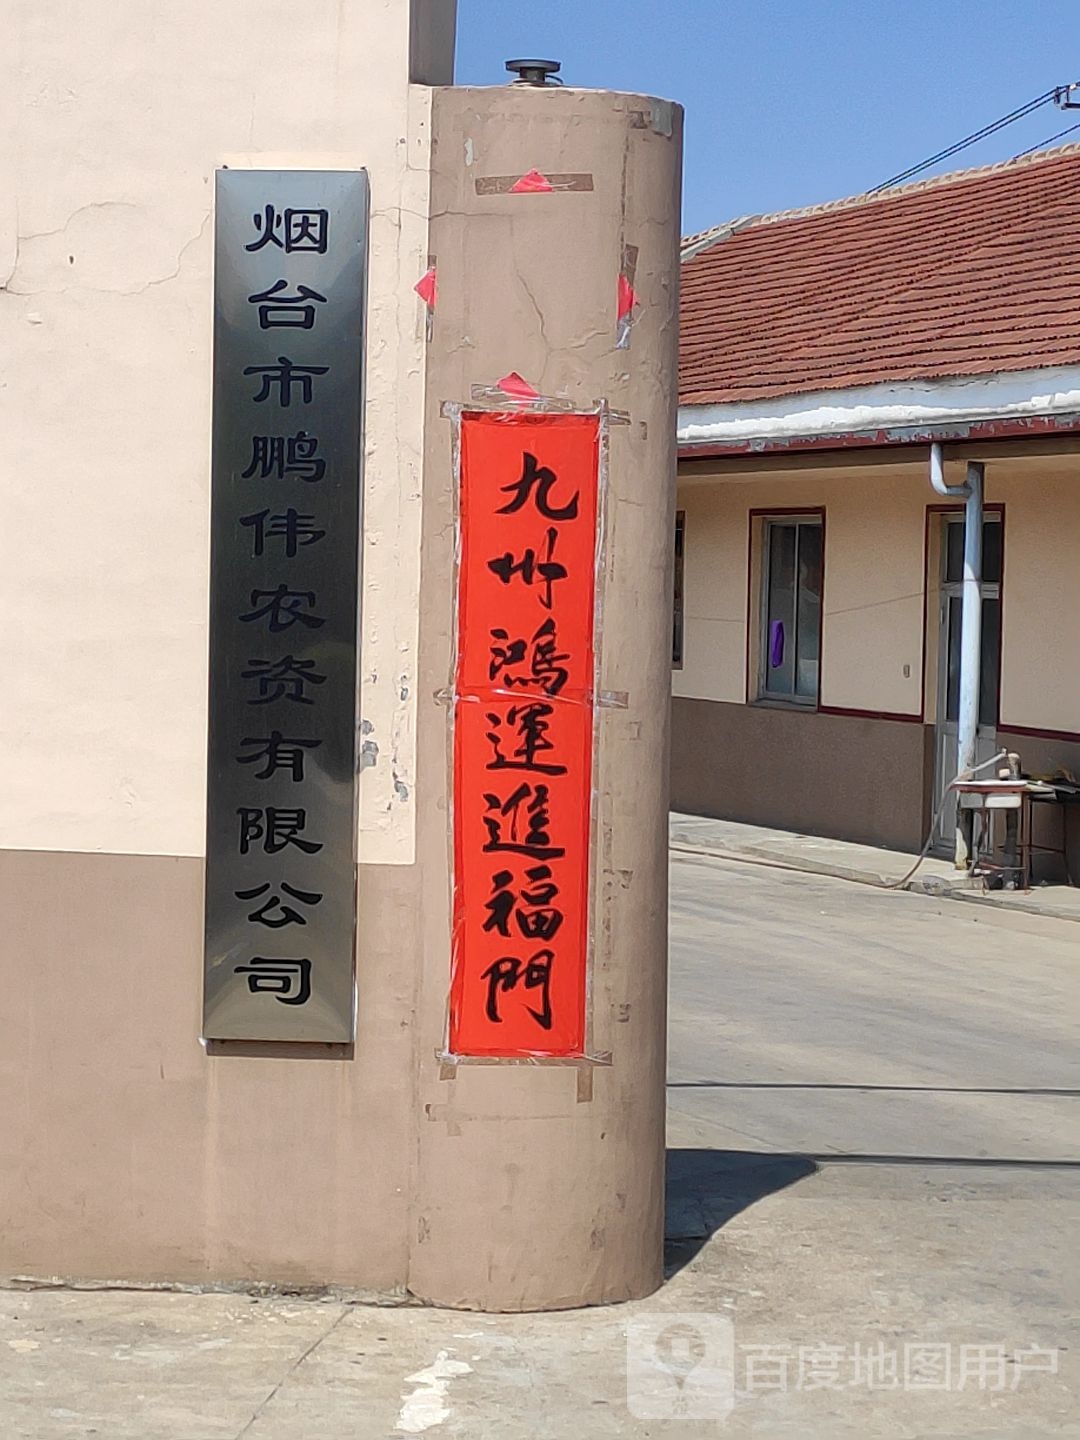 烟台市鹏伟农资有限公司
九州鴻運進福門
百度地图用户